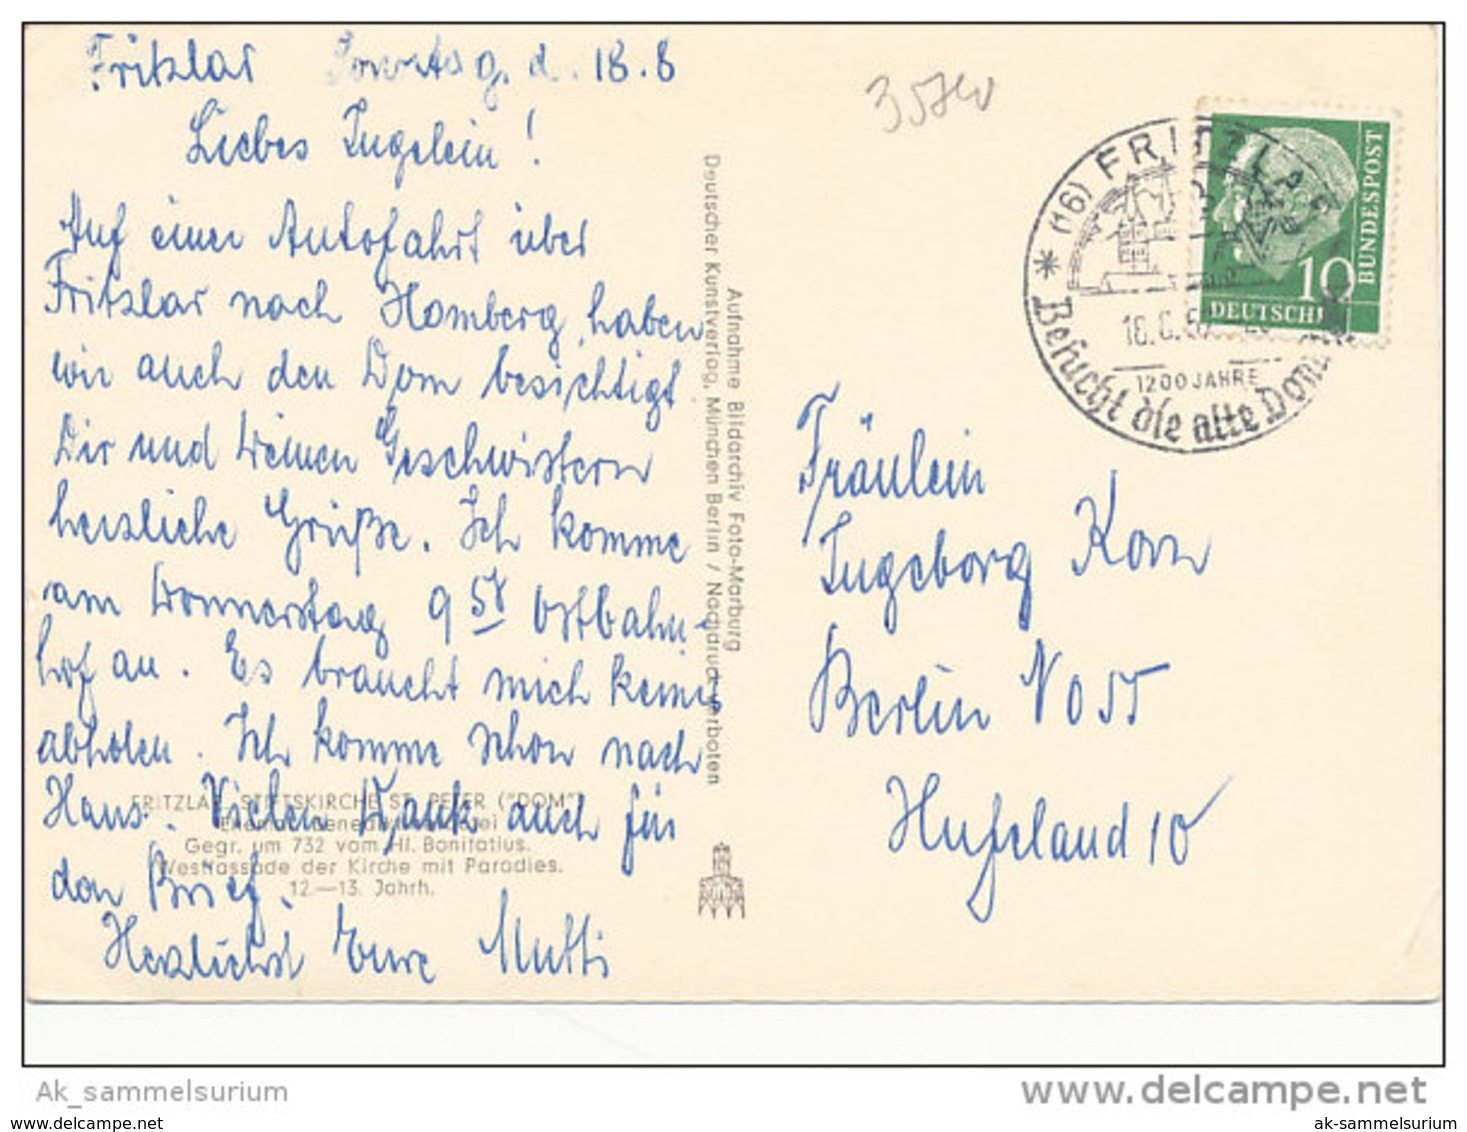 Fritzlar Sonntag, d. 18.8
Liebes Ingelein!
Auf einer Autofahrt über
Fritzlar nach Homberg, haben
wir auch den Dom besichtigt
Dir und Deinen Geschwistern
herzliche Grüße. Ich komme
am Donnerstag 9 58 Ostbahn-
hof an. Es braucht mich keins
abholen. Ich komme schon nach
Haus. Vielen Dank auch für
den Brief.
Herzlichst Eure Mutti
FRITZLAR, STIFTSKIRCHE ST. PETER ("DOM")
Ehemal. Benediktinerabtei
Gegr. um 732 vom Hl. Bonifatius.
Westfassade der Kirche mit Paradies.
12.—13. Jahrh.
Aufnahme Bildarchiv Foto-Marburg
Deutscher Kunstverlag, München Berlin / Nachdruck verboten
(16) FRITZLAR
1200 JAHRE
Besucht die alte
DEUTSCHE
BUNDESPOST
10
Fräulein
Ingeborg Korn
Berlin NO 55
Hufeland 10
Ak_sammelsurium
www.delcampe.net
www.delcampe.net
ak-sammelsurium